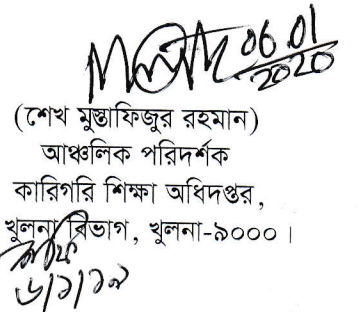 06.01
2020
(শেখ মুস্তাফিজুর রহমান)
আঞ্চলিক পরিদর্শক
কারিগরি শিক্ষা অধিদপ্তর,
খুলনা বিভাগ, খুলনা-৯০০০।
৬/১/১৯